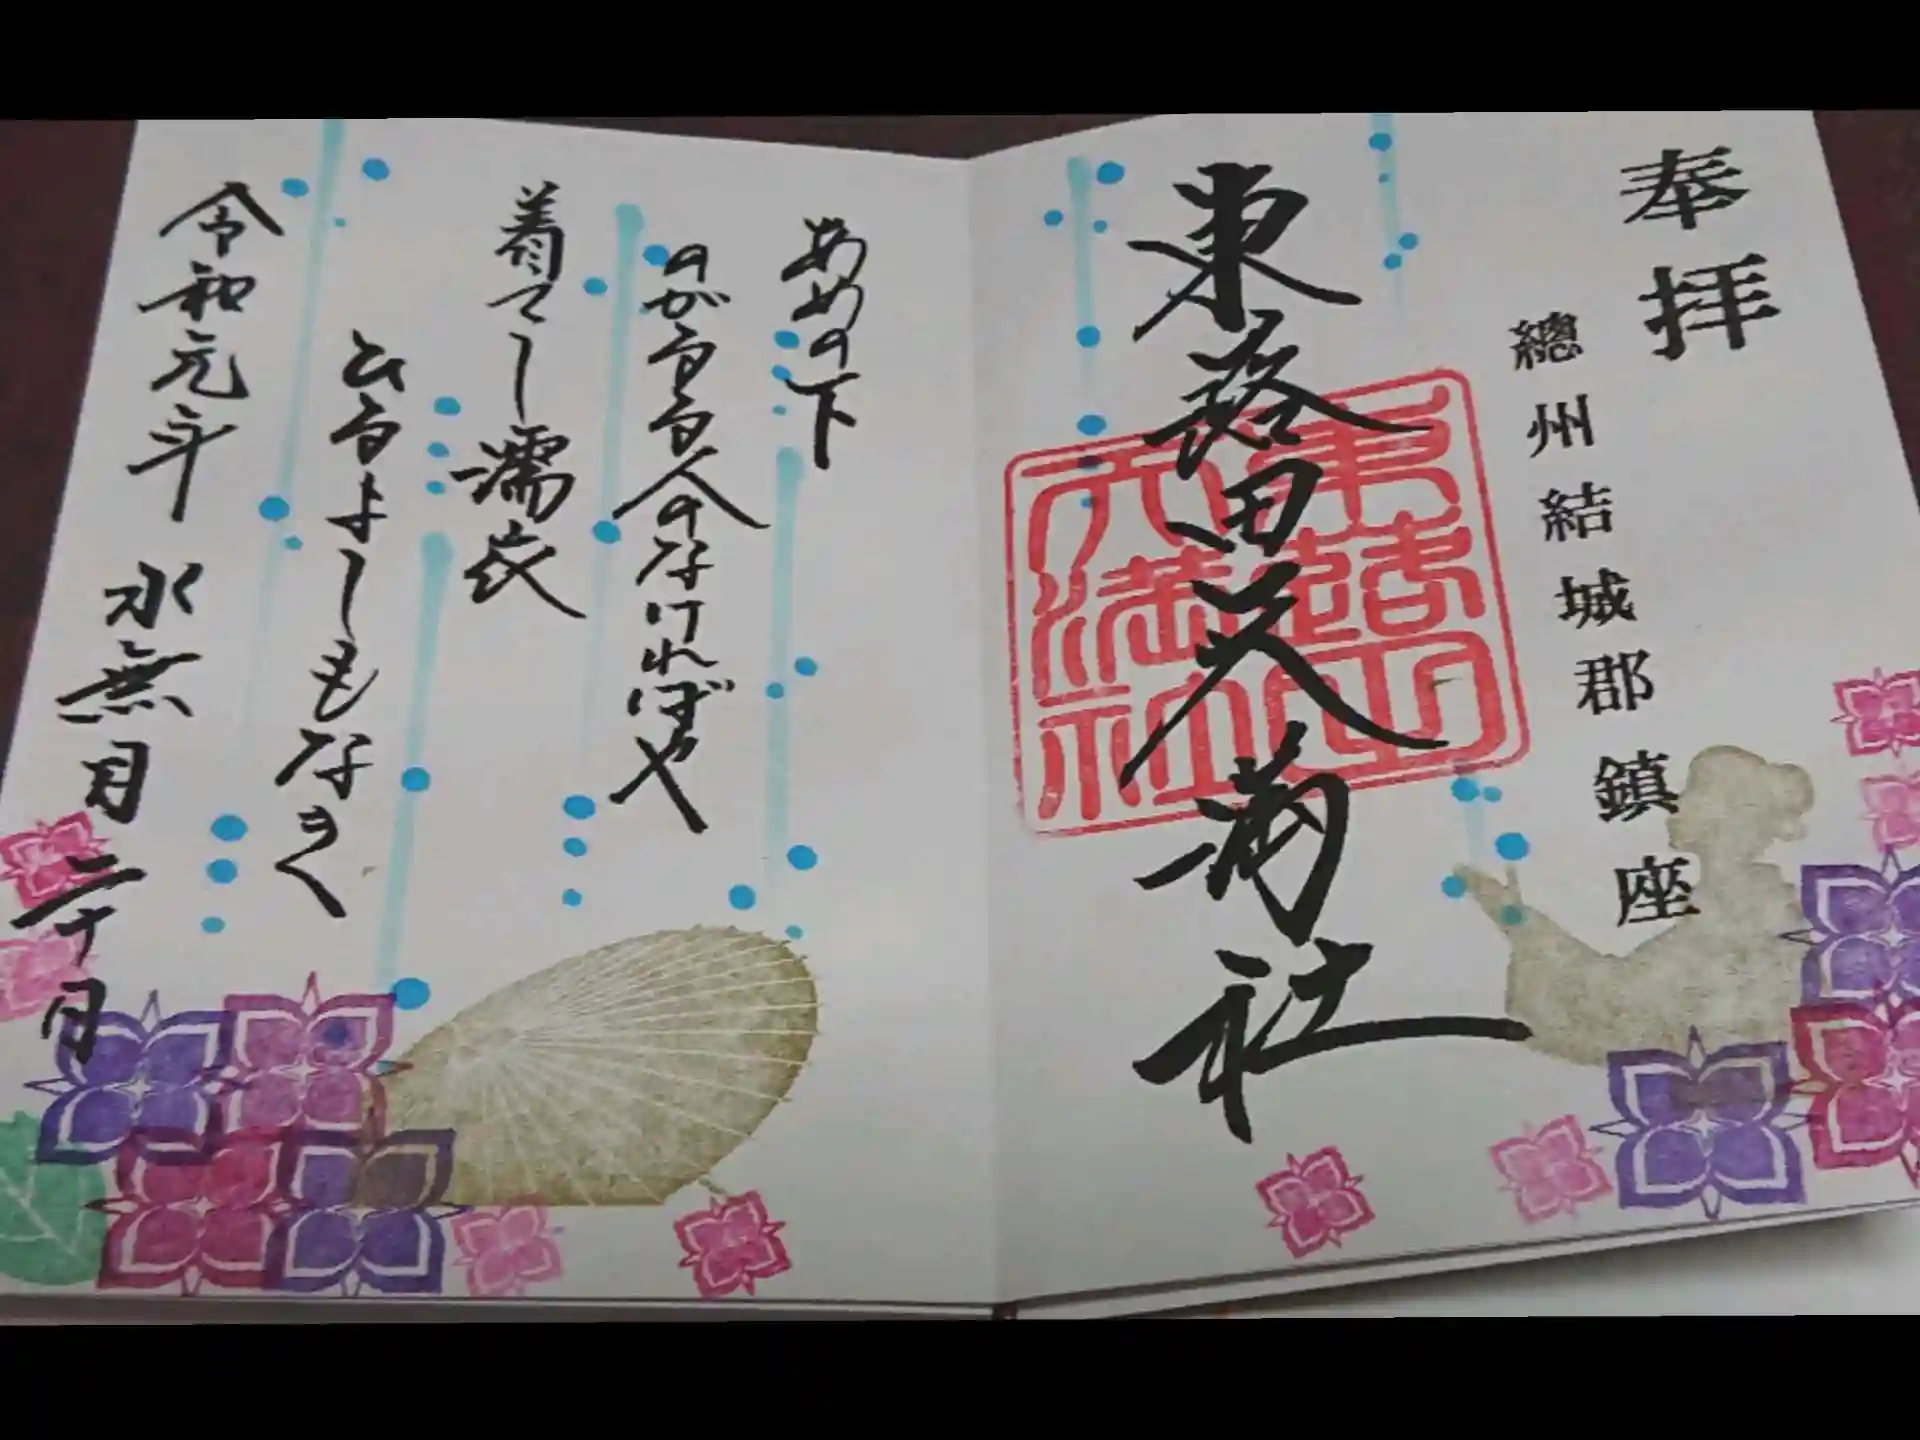 奉拝
總州結城郡鎮座
東蕗田天満社
東蕗田
天満社
あめの下
のがるる人のなければや
着てし濡衣
ひるよしもなき
令和元年 水無月二十日